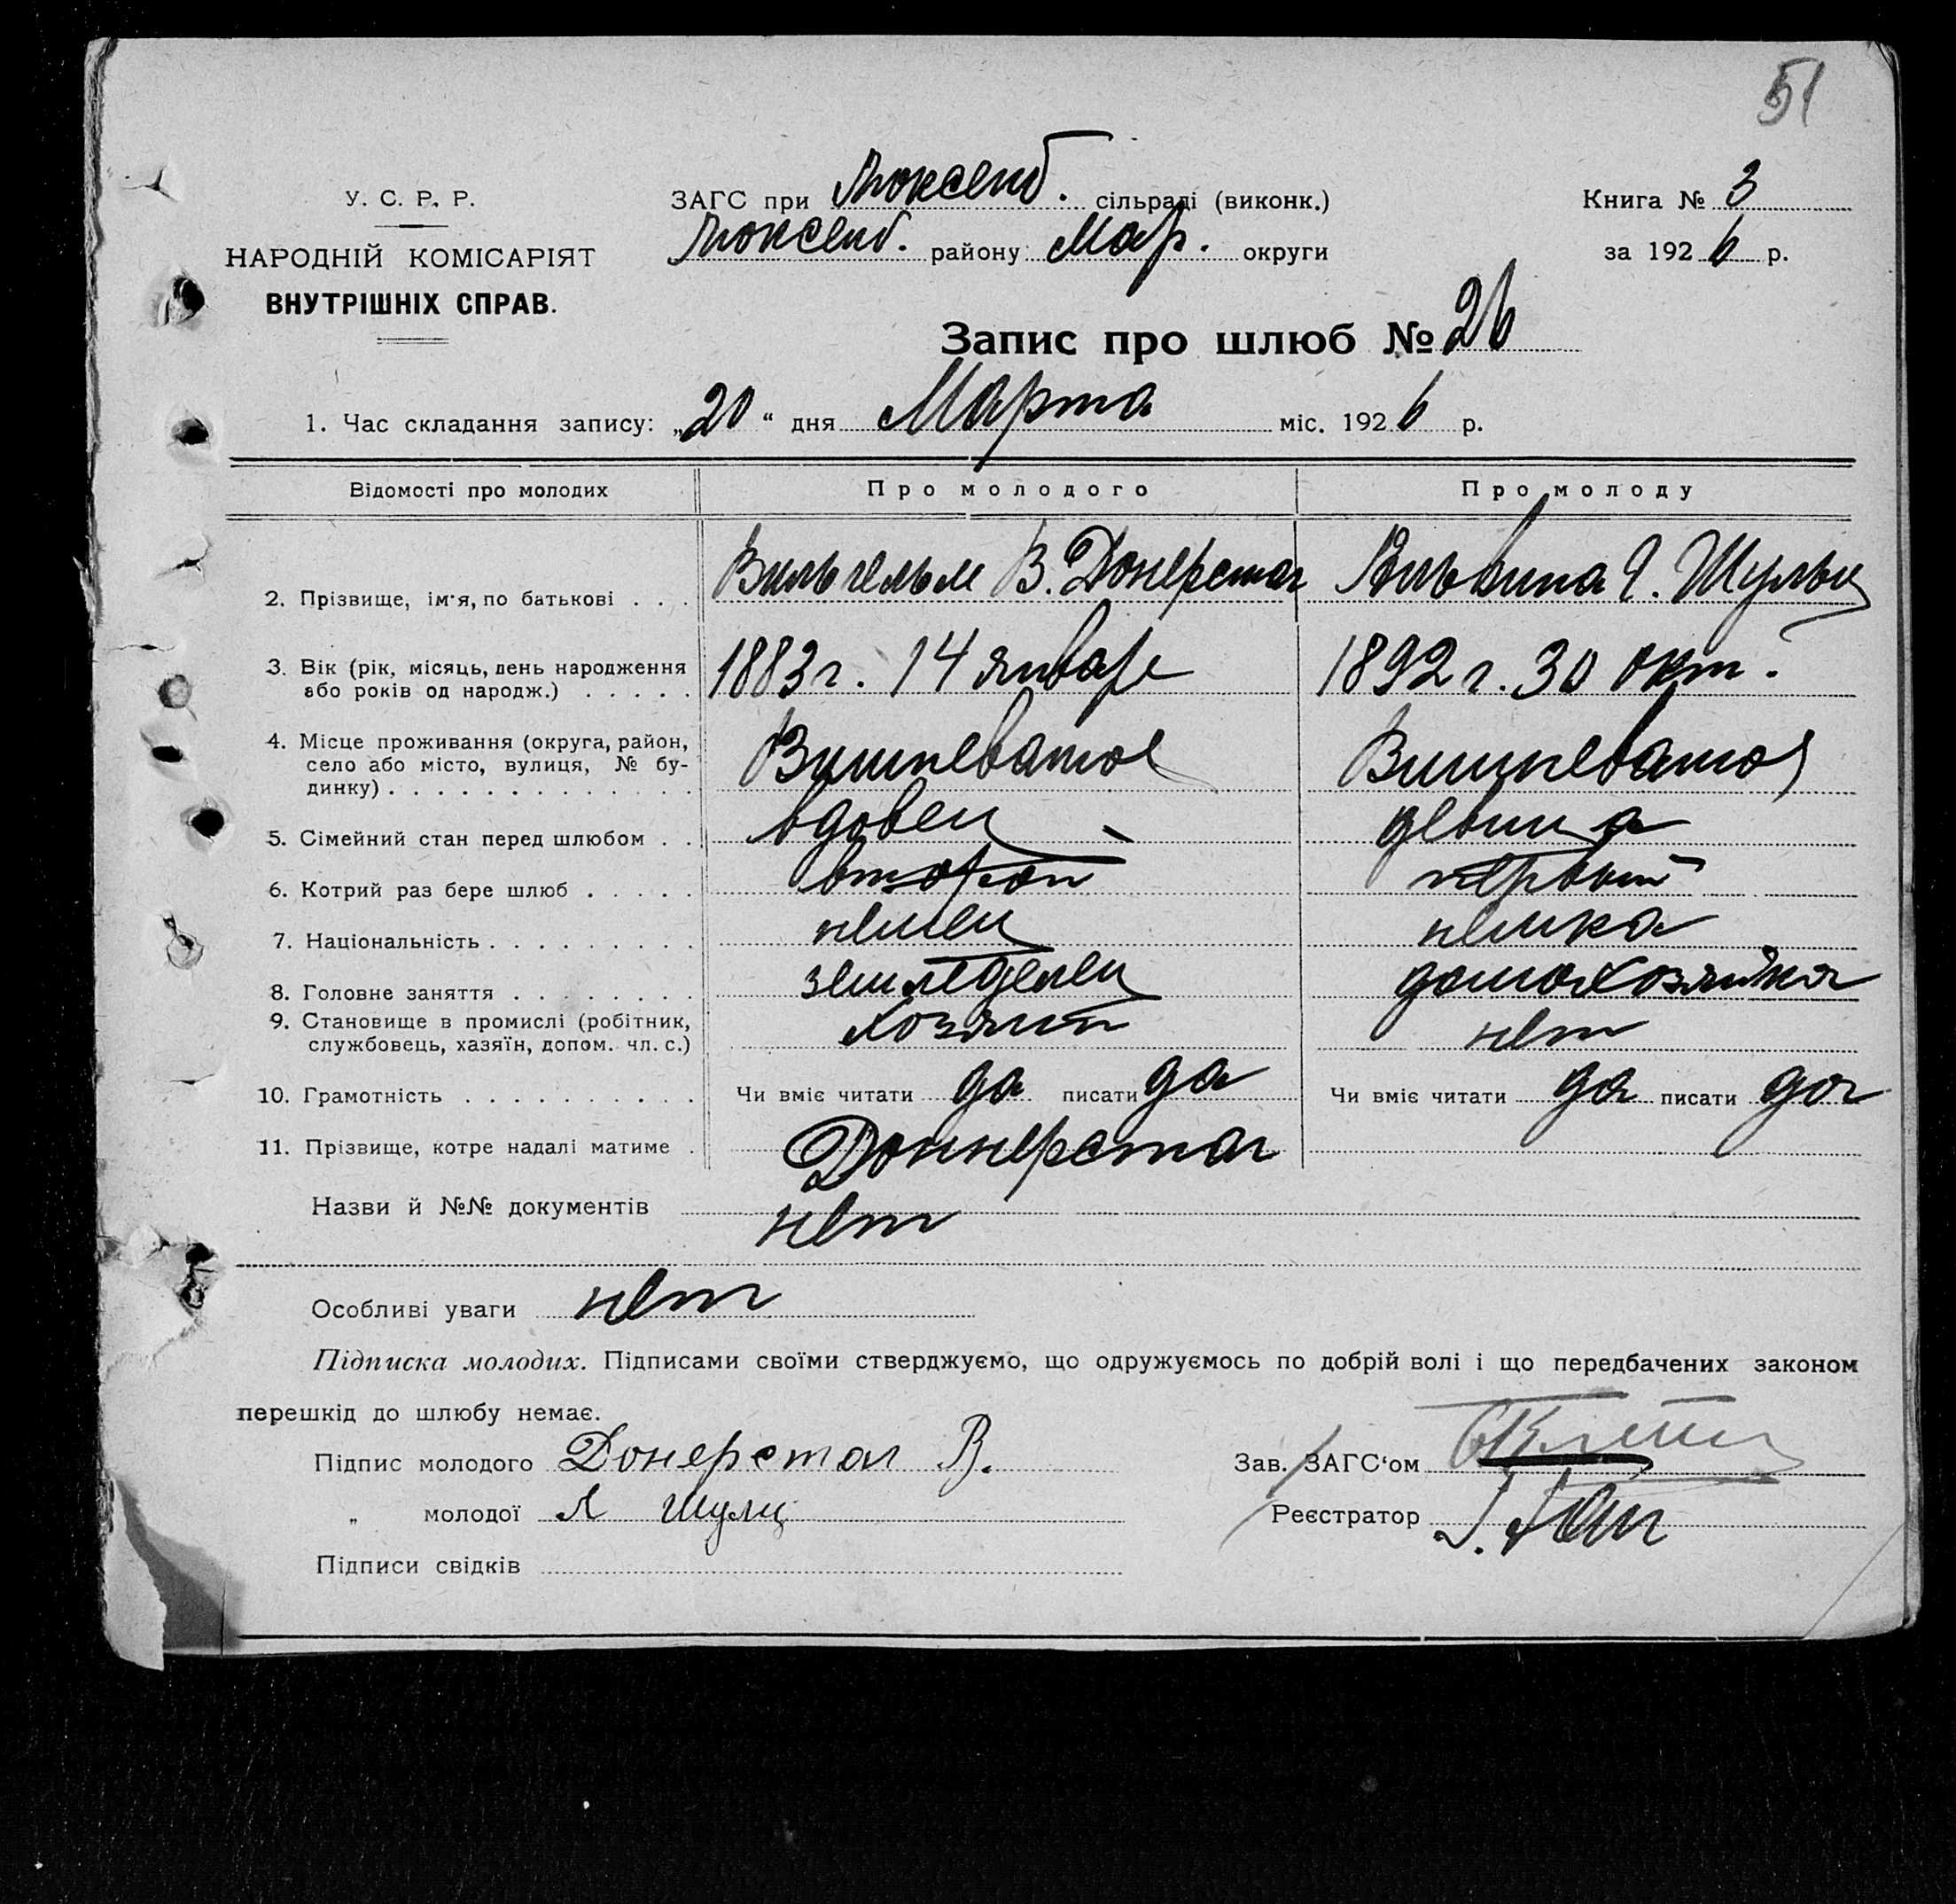 51
У. С. Р. Р.
НАРОДНІЙ КОМІСАРІЯТ
ВНУТРІШНІХ СПРАВ.
ЗАГС при Люксемб. сільраді (виконк.)
Люксемб. району Мар. округи
Книга № 3
за 1926 р.
Запис про шлюб № 26
1. Час складання запису: „20“ дня Марта міс. 1926 р.
Відомості про молодих Про молодого Про молоду
2. Прізвище, ім'я, по батькові . . . Вильгельм В. Донерстаг Альвина Я. Шульц
3. Вік (рік, місяць, день народження 1883 г. 14 январе 1892 г. 30 окт.
або років од народж.) . . . . .
4. Місце проживання (округа, район, Вишневатое Вишневатое
село або місто, вулиця, № бу-
динку) . . . . . . . . . . . . .
5. Сімейний стан перед шлюбом . . вдовец девица
6. Котрий раз бере шлюб . . . . . второй первый
7. Національність . . . . . . . . . немец немка
8. Головне заняття . . . . . . . . земледелец домохозяйка
9. Становище в промислі (робітник, хозяин нет
службовець, хазяїн, допом. чл. с.)
10. Грамотність . . . . . . . . . . Чи вміє читати да писати да Чи вміє читати да писати да
11. Прізвище, котре надалі матиме . Доннерстаг
Назви й №№ документів нет
Особливі уваги нет
Підписка молодих. Підписами своїми стверджуємо, що одружуємось по добрій волі і що передбачених законом
перешкід до шлюбу немає.
Підпис молодого Донерстаг В. Зав. ЗАГС‘ом
„ молодої А Шулц Реєстратор
Підписи свідків